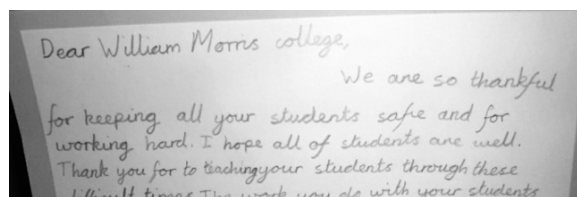 Dear William Morris college,
We are so thankful
for keeping all your students safe and for
working hard. I hope all of students are well.
Thank you for to teaching your students through these
difficult times The work you do with your students